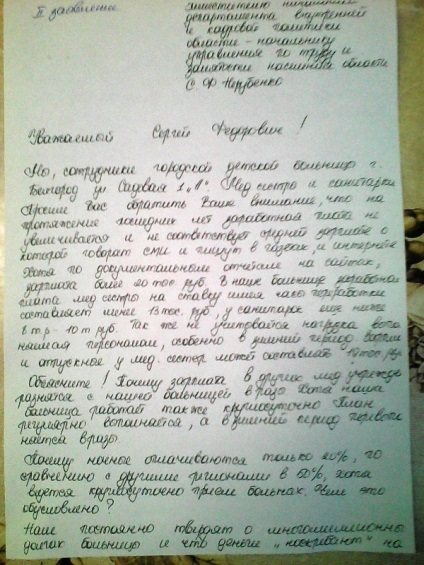 II заявление
Заместителю начальника
департамента внутренней
и кадровой политики
области – начальнику
управления по труду и
занятости населения области
С. Ф Нерубенко
Уважаемый Сергей Федорович!
Мы, сотрудники городской детской больницы г.
Белгород ул Садовая 1 "А" Мед.сестры и санитарки
Просим Вас обратить Ваше внимание, что на
протяжение последних лет заработная плата не
увеличивается и не соответствует средней зарплате о
которой говорят сми и пишут в газетах и интернете
Хотя по документальным отчётам на сайтах,
зарплата более 20 тыс. руб. В нашей больнице заработная
плата мед сестры на ставку имея часы переработки
составляет менее 13 тыс. руб, у санитарок еще ниже
8 т.р – 10 т. руб. Так же не учитывается нагрузка
персоналом, особенно в зимний период.
и отпускное у мед. сестер может составлять
Объясните! Почему зарплата в других мед учрежде
разнятся с нашей больницей в разы Хотя наша
больница работает так же круглосуточно План
регулярно выполняется, а в зимний период
в разы.
Почему ночное оплачиваются только 20%, по
сравнению с другими регионами в 50%, хотя
ведется круглосуточно прием больных. Чем это
обусловлено?
Наше постоянно твердят о многомиллионных
долгах больницы и что деньги на